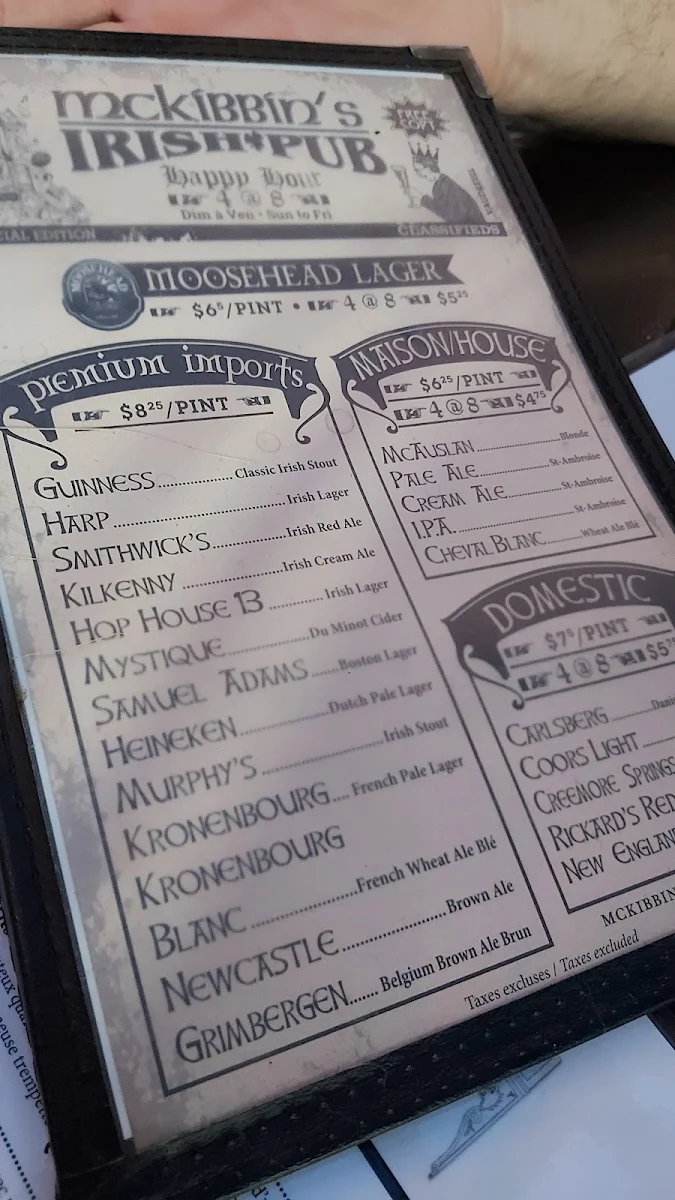 McKibbin's
Irish Pub
Happy Hour
4 @ 8
Dim à Ven - Sun to Fri
CIAL EDITION
CLASSIFIEDS
FREE COPY
MOOSEHEAD
MOOSEHEAD LAGER
$6⁵/PINT • 4 @ 8 $5²⁵
Premium Imports
$8²⁵/PINT
GUINNESS.................. Classic Irish Stout
HARP ..............................Irish Lager
SMITHWICK'S..............Irish Red Ale
KILKENNY ......................Irish Cream Ale
HOP HOUSE 13 ............Irish Lager
MYSTIQUE..................Du Minot Cider
SAMUEL ADAMS......Boston Lager
HEINEKEN....................Dutch Pale Lager
MURPHY'S ......................Irish Stout
KRONENBOURG.... French Pale Lager
KRONENBOURG
BLANC ......................French Wheat Ale Blé
NEWCASTLE......................Brown Ale
GRIMBERGEN....... Belgium Brown Ale Brun
MAISON/HOUSE
$6²⁵/PINT
4 @ 8 $4⁷⁵
MCAUSLAN......................Blonde
PALE ALE..................St-Ambroise
CREAM ALE..............St-Ambroise
I.P.A..............................St-Ambroise
CHEVAL BLANC..........Wheat Ale Blé
DOMESTIC
$7⁵/PINT
4 @ 8 $5⁷⁵
CARLSBERG............Dani
COORS LIGHT ........
CREEMORE SPRINGS
RICKARD'S RED
NEW ENGLAN
MCKIBBIN
Taxes excluses / Taxes excluded